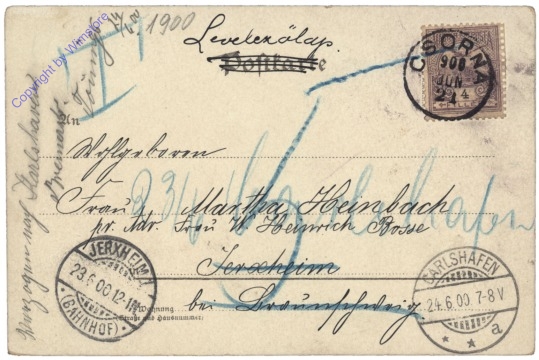 Copyright by Winstore
1900
Levelezőlap.
Postkarte
CSORNA
900
JUN
21
4
An
Wohlgeboren
Frau Martha Heinbach
pr. Adr. Frau W. Heinrich Bosse
Jerxheim
bei Braunschweig
Wohnung
Straße und Hausnummer
JERXHEIM
23.6.00.12-1N
(BAHNHOF)
CARLSHAFEN
24.6.00.7-8V
* * a